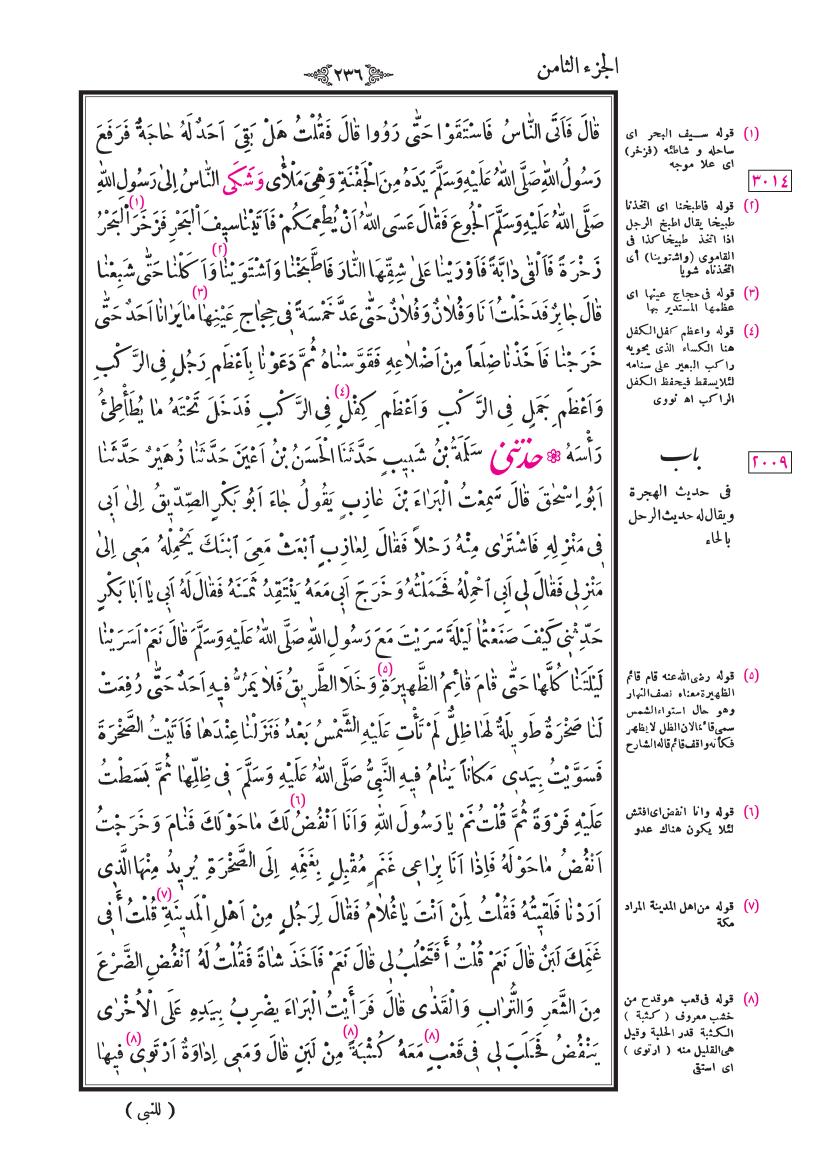 الجزء الثامن
٢٣٦
قَالَ فَاَتَى النَّاسُ فَاسْتَقَوْا حَتّٰى رَوُوا قَالَ فَقُلْتُ هَلْ بَقِىَ اَحَدٌ لَهُ حَاجَةٌ فَرَفَعَ
رَسُولُ اللهِ صَلَّى اللهُ عَلَيْهِ وَسَلَّمَ يَدَهُ مِنَ الْجَفْنَةِ وَهْىَ مَلْأٰى وَشَكَى النَّاسُ اِلٰى رَسُولِ اللهِ
صَلَّى اللهُ عَلَيْهِ وَسَلَّمَ الْجُوعَ فَقَالَ عَسَى اللهُ اَنْ يُطْعِمَكُمْ فَاَتَيْنَا سِيفَ الْبَحْرِ (١) فَزَخَرَ الْبَحْرُ
زَخْرَةً فَاَلْقٰى دَابَّةً فَاَوْرَيْنَا عَلٰى شِقِّهَا النَّارَ فَاطَّبَخْنَا (٢) وَاشْتَوَيْنَا وَاَكَلْنَا حَتّٰى شَبِعْنَا
قَالَ جَابِرٌ فَدَخَلْتُ اَنَا وَفُلَانٌ وَفُلَانٌ حَتّٰى عَدَّ خَمْسَةً فِى حِجَاجِ عَيْنِهَا (٣) مَا يَرَانَا اَحَدٌ حَتّٰى
خَرَجْنَا فَاَخَذْنَا ضِلَعاً مِنْ اَضْلَاعِهِ فَقَوَّسْنَاهُ ثُمَّ دَعَوْنَا بِاَعْظَمِ رَجُلٍ فِى الرَّكْبِ
وَاَعْظَمِ جَمَلٍ فِى الرَّكْبِ وَاَعْظَمِ كِفْلٍ (٤) فِى الرَّكْبِ فَدَخَلَ تَحْتَهُ مَا يُطَأْطِئُ
رَأْسَهُ ۞ حَدَّثَنِى سَلَمَةُ بْنُ شَبِيبٍ حَدَّثَنَا الْحَسَنُ بْنُ اَعْيَنَ حَدَّثَنَا زُهَيْرٌ حَدَّثَنَا
اَبُو اِسْحٰقَ قَالَ سَمِعْتُ الْبَرَاءَ بْنَ عَازِبٍ يَقُولُ جَاءَ اَبُو بَكْرٍ الصِّدِّيقُ اِلٰى اَبِى
فِى مَنْزِلِهِ فَاشْتَرٰى مِنْهُ رَحْلاً فَقَالَ لِعَازِبٍ اِبْعَثْ مَعِىَ ابْنَكَ يَحْمِلْهُ مَعِى اِلٰى
مَنْزِلِى فَقَالَ لِى اَبِى احْمِلْهُ فَحَمَلْتُهُ وَخَرَجَ اَبِى مَعَهُ يَنْتَقِدُ ثَمَنَهُ فَقَالَ لَهُ اَبِى يَا اَبَا بَكْرٍ
حَدِّثْنِى كَيْفَ صَنَعْتُمَا لَيْلَةَ سَرَيْتَ مَعَ رَسُولِ اللهِ صَلَّى اللهُ عَلَيْهِ وَسَلَّمَ قَالَ نَعَمْ اَسْرَيْنَا
لَيْلَتَنَا كُلَّهَا حَتّٰى قَامَ قَائِمُ الظَّهِيرَةِ (٥) وَخَلَا الطَّرِيقُ فَلَا يَمُرُّ فِيهِ اَحَدٌ حَتّٰى رُفِعَتْ
لَنَا صَخْرَةٌ طَوِيلَةٌ لَهَا ظِلٌّ لَمْ تَأْتِ عَلَيْهِ الشَّمْسُ بَعْدُ فَنَزَلْنَا عِنْدَهَا فَاَتَيْتُ الصَّخْرَةَ
فَسَوَّيْتُ بِيَدِى مَكَاناً يَنَامُ فِيهِ النَّبِىُّ صَلَّى اللهُ عَلَيْهِ وَسَلَّمَ فِى ظِلِّهَا ثُمَّ بَسَطْتُ
عَلَيْهِ فَرْوَةً ثُمَّ قُلْتُ نَمْ يَا رَسُولَ اللهِ وَاَنَا اَنْفُضُ (٦) لَكَ مَا حَوْلَكَ فَنَامَ وَخَرَجْتُ
اَنْفُضُ مَا حَوْلَهُ فَاِذَا اَنَا بِرَاعِى غَنَمٍ مُقْبِلٍ بِغَنَمِهِ اِلَى الصَّخْرَةِ يُرِيدُ مِنْهَا الَّذِى
اَرَدْنَا فَلَقِيتُهُ فَقُلْتُ لِمَنْ اَنْتَ يَا غُلَامُ فَقَالَ لِرَجُلٍ مِنْ اَهْلِ الْمَدِينَةِ (٧) قُلْتُ أَفِى
غَنَمِكَ لَبَنٌ قَالَ نَعَمْ قُلْتُ أَفَتَحْلُبُ لِى قَالَ نَعَمْ فَاَخَذَ شَاةً فَقُلْتُ لَهُ انْفُضِ الضَّرْعَ
مِنَ الشَّعَرِ وَالتُّرَابِ وَالْقَذٰى قَالَ فَرَأَيْتُ الْبَرَاءَ يَضْرِبُ بِيَدِهِ عَلَى الْاُخْرٰى
يَنْفُضُ فَحَلَبَ لِى فِى قَعْبٍ (٨) مَعَهُ كُثْبَةً (٨) مِنْ لَبَنٍ قَالَ وَمَعِى اِدَاوَةٌ اَرْتَوِى (٨) فِيهَا
( للنبى )
(١) قوله سيف البحر اى
ساحله و شاطئه (فزخر)
اى علا موجه
٣٠١٤
(٢) قوله فاطبخنا اى اتخذنا
طبيخا يقال اطبخ الرجل
اذا اتخذ طبيخا كذا فى
القاموى (واشتوينا) أى
اتخذناه شويا
(٣) قوله فى حجاج عينها اى
عظمها المستدير بها
(٤) قوله واعظم كفل الكفل
هنا الكساء الذى يحويه
راكب البعير على سنامه
لئلا يسقط فيحفظ الكفل
الراكب اه نووى
باب
٢٠٠٩
فى حديث الهجرة
ويقال له حديث الرحل
بالحاء
(٥) قوله رضى الله عنه قام قائم
الظهيرة معناه نصف النهار
وهو حال استواء الشمس
سمى قائما لان الظل لا يظهر
فكأنه واقف قائم قاله الشارح
(٦) قوله وانا انفض اى افتش
لئلا يكون هناك عدو
(٧) قوله من اهل المدينة المراد
مكة
(٨) قوله فى قعب هو قدح من
خشب معروف ( كثبة )
الكثبة قدر الحلبة وقيل
هى القليل منه ( ارتوى )
اى استقى